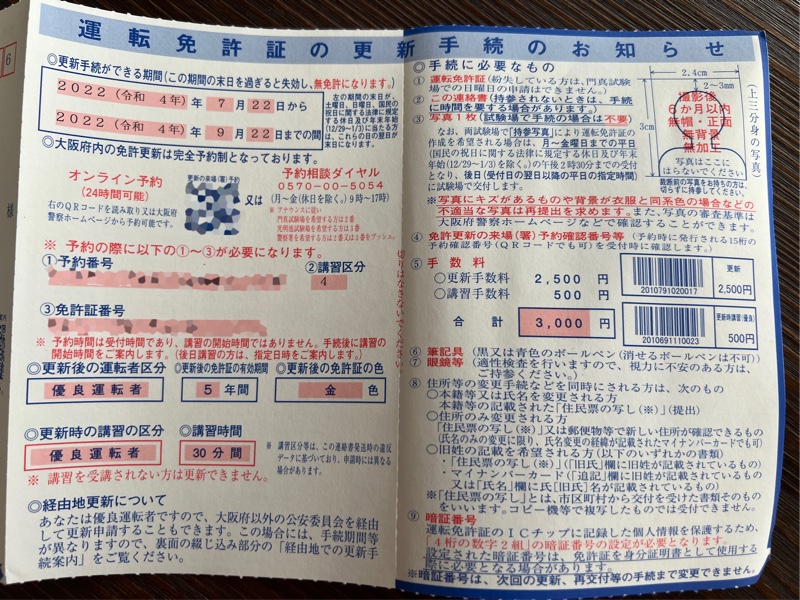 運転免許証の更新手続のお知らせ
6
様
◎更新手続ができる期間(この期間の末日を過ぎると失効し、無免許になります。)
2022(令和 4年)年 7月22日から
2022(令和 4年)年 9月22日までの間
左の期間の末日が、
土曜日、日曜日、国民の
祝日に関する法律に規定
する休日及び年末年始
(12/29〜1/3)に当たる方
は、これらの日の翌日が
末日になります。
◎大阪府内の免許更新は完全予約制となっております。
オンライン予約
(24時間可能)
右のQRコードを読み取り又は大阪府
警察ホームページから予約可能です。
更新の来場(署)予約
又は
予約相談ダイヤル
0570-00-5054
(月〜金(休日を除く。)9時〜17時)
※ アナウンスに従い
門真試験場を希望する方は1番
光明池試験場を希望する方は2番
警察署を希望する方は3番をプッシュ。
※ 予約の際に以下の①〜③が必要になります。
①予約番号
②講習区分
4
③免許証番号
※ 予約時間は受付時間であり、講習の開始時間ではありません。手続後に講習の
開始時間をご案内します。(後日講習の方は、指定日時をご案内します。)
◎更新後の運転者区分
◎更新後の免許証の有効期間
◎更新後の免許証の色
優良運転者
5 年間
金 色
◎更新時の講習の区分
◎講習時間
優良運転者
30分間
※ 講習区分等は、この連絡書発送時の違反
データに基づいており、申請時には異なる
場合があります。
※ 講習を受講されない方は更新できません。
◎経由地更新について
あなたは優良運転者ですので、大阪府以外の公安委員会を経由
して更新申請することもできます。この場合には、手続期間等
が異なりますので、裏面の綴じ込み部分の「経由地での更新手
続案内」をご覧ください。
切りはなさないでください。
◎手続に必要なもの
① 運転免許証(紛失している方は、門真試験
場での日曜日の申請はできません。)
② この連絡書(持参されないときは、手続
に時間を要する場合があります。)
③ 写真1枚(試験場で手続の場合は不要)
なお、両試験場で「持参写真」により運転免許証の
作成を希望する場合は、月〜金曜日までの平日
(国民の祝日に関する法律に規定する休日及び年末
年始(12/29〜1/3)を除く。)の午後2時30分までの受付
となり、後日(受付日の翌日以降の平日の指定時間)
に試験場で交付します。
2.4cm
2〜3mm
3cm
撮影後
6か月以内
無帽・正面
無背景
無加工
写真はここに
はらないでください
(上三分身の写真)
裁断前の写真をお持ちの方は、
切らずに持参してください。
※写真にキズがあるものや背景が衣服と同系色の場合などの
不適当な写真は再提出を求めます。また、写真の審査基準は
大阪府警察ホームページなどで確認することができます。
④ 免許更新の来場(署)予約確認番号等(予約時に発行される15桁の
予約確認番号(QRコードでも可)を受付時に確認します。)
⑤ 手 数 料
○更新手数料 2,500 円
○講習手数料 500 円
合 計 3,000 円
2010791020017
更新
2,500円
2010691110023
更新時講習(優良)
500円
⑥ 筆記具(黒又は青色のボールペン(消せるボールペンは不可))
⑦ 眼鏡等(適性検査を行いますので、視力に不安のある方は、
ご持参ください。)
⑧ 住所等の変更手続などを同時にされる方は、次のもの
○本籍等又は氏名を変更される方
本籍等の記載された「住民票の写し(※)」(提出)
○住所のみ変更する方
「住民票の写し(※)」又は郵便物等で新しい住所が確認できるもの
(氏名のみの変更に限り、氏名変更の経緯が記載されたマイナンバーカードでも可)
○旧姓の記載を希望される方(以下のいずれかの書類)
・「住民票の写し(※)」(「旧氏」欄に旧姓が記載されているもの)
・マイナンバーカード(「追記」欄に旧姓が記載されているもの
又は「氏名」欄に氏[旧氏]名が記載されているもの)
※「住民票の写し」とは、市区町村から交付を受けた書類そのもの
をいいます。コピー機等で複写したものでは受付できません。
⑨ 暗証番号
運転免許証のICチップに記録した個人情報を保護するため、
「4桁の数字2組」の暗証番号の設定が必要となります。
設定された暗証番号は、免許証を身分証明書として使用する
際に必要となる場合があります。
※暗証番号は、次回の更新、再交付等の手続まで変更できません。